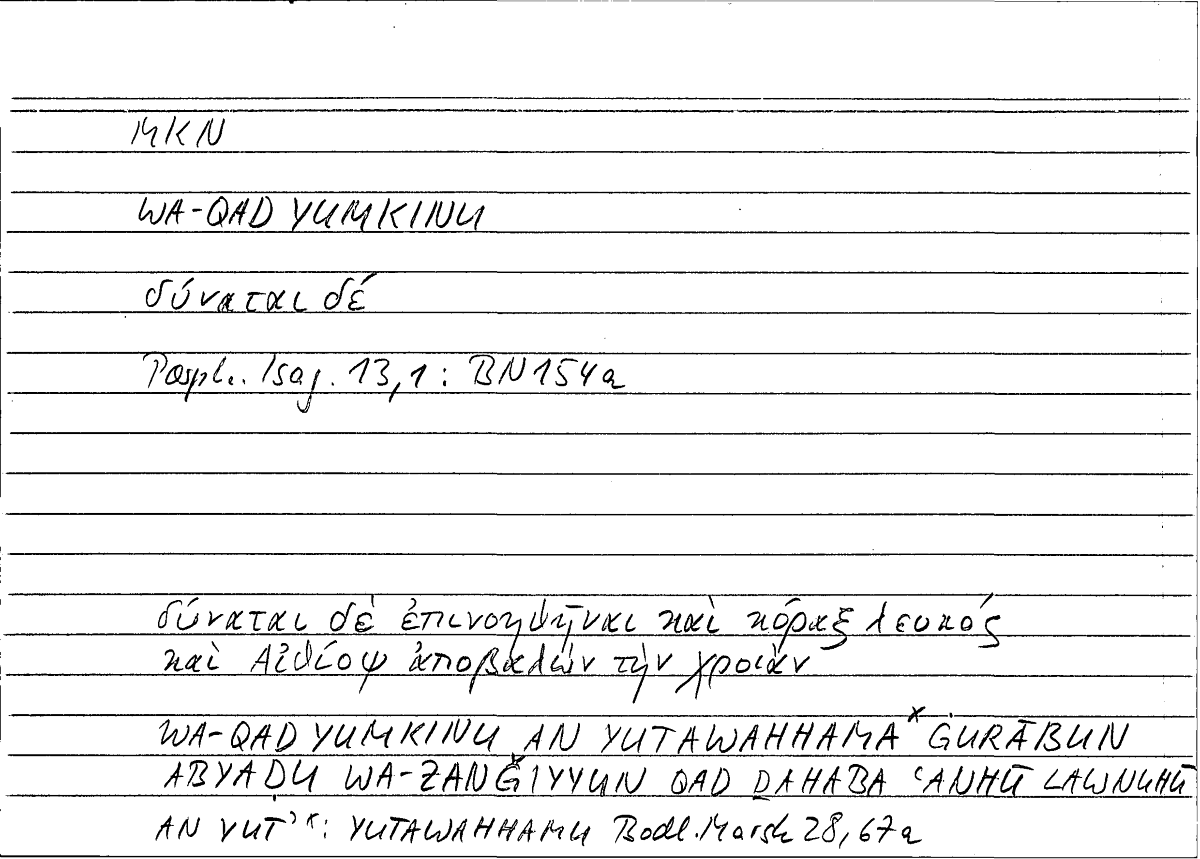 MKN
WA-QAD YUMKINU
δύναται δέ
Porph. Isag. 13,1: BN154a
δύναται δὲ ἐπινοηθῆναι καὶ κόραξ λευκός
καὶ Αἰθίοψ ἀποβαλὼν τὴν χροιάν
WA-QAD YUMKINU AN YUTAWAHHAMAˣ ĠURĀBUN
ABYAḌU WA-ZANǦIYYUNˣ QAD ḎAHABA ʿANHŪ LAWNUHŪ
AN YUTʾˣ: YUTAWAHHAMU Bodl. Marsh 28,67a